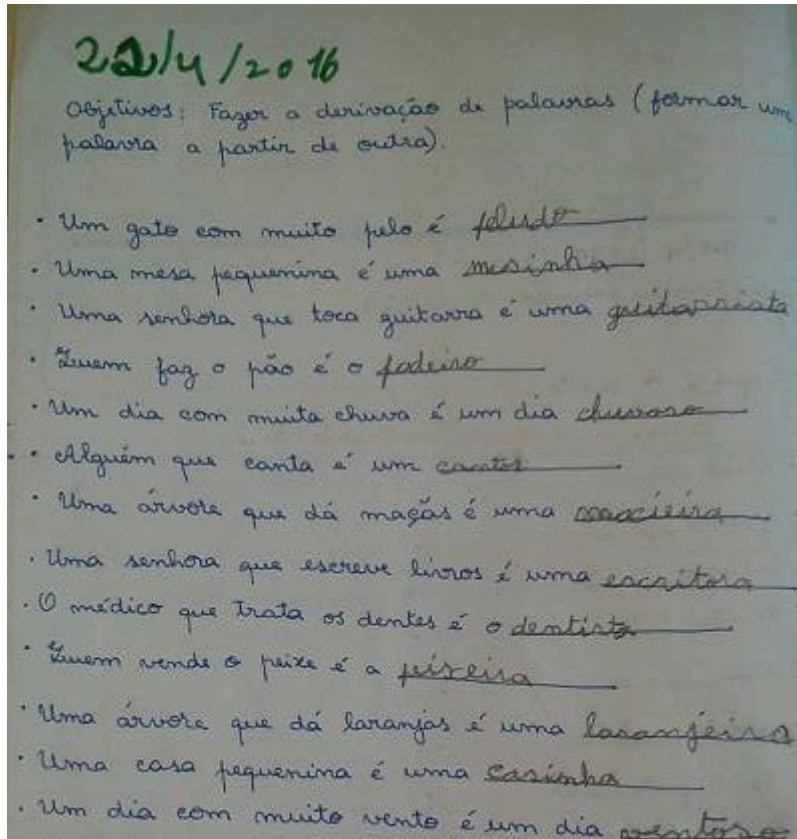 22/4/2016
Objetivos: Fazer a derivação de palavras (formar um
palavra a partir de outra).
· Um gato com muito pelo é peludo
· Uma mesa pequenina é uma mesinha
· Uma senhora que toca guitarra é uma guitarrista
· Quem faz o pão é o padeiro
· Um dia com muita chuva é um dia chuvoso
· Alguém que canta é um cantor
· Uma árvore que dá maçãs é uma macieira
· Uma senhora que escreve livros é uma escritora
· O médico que trata os dentes é o dentista
· Quem vende o peixe é a peixeira
· Uma árvore que dá laranjas é uma laranjeira
· Uma casa pequenina é uma casinha
· Um dia com muito vento é um dia ventoso